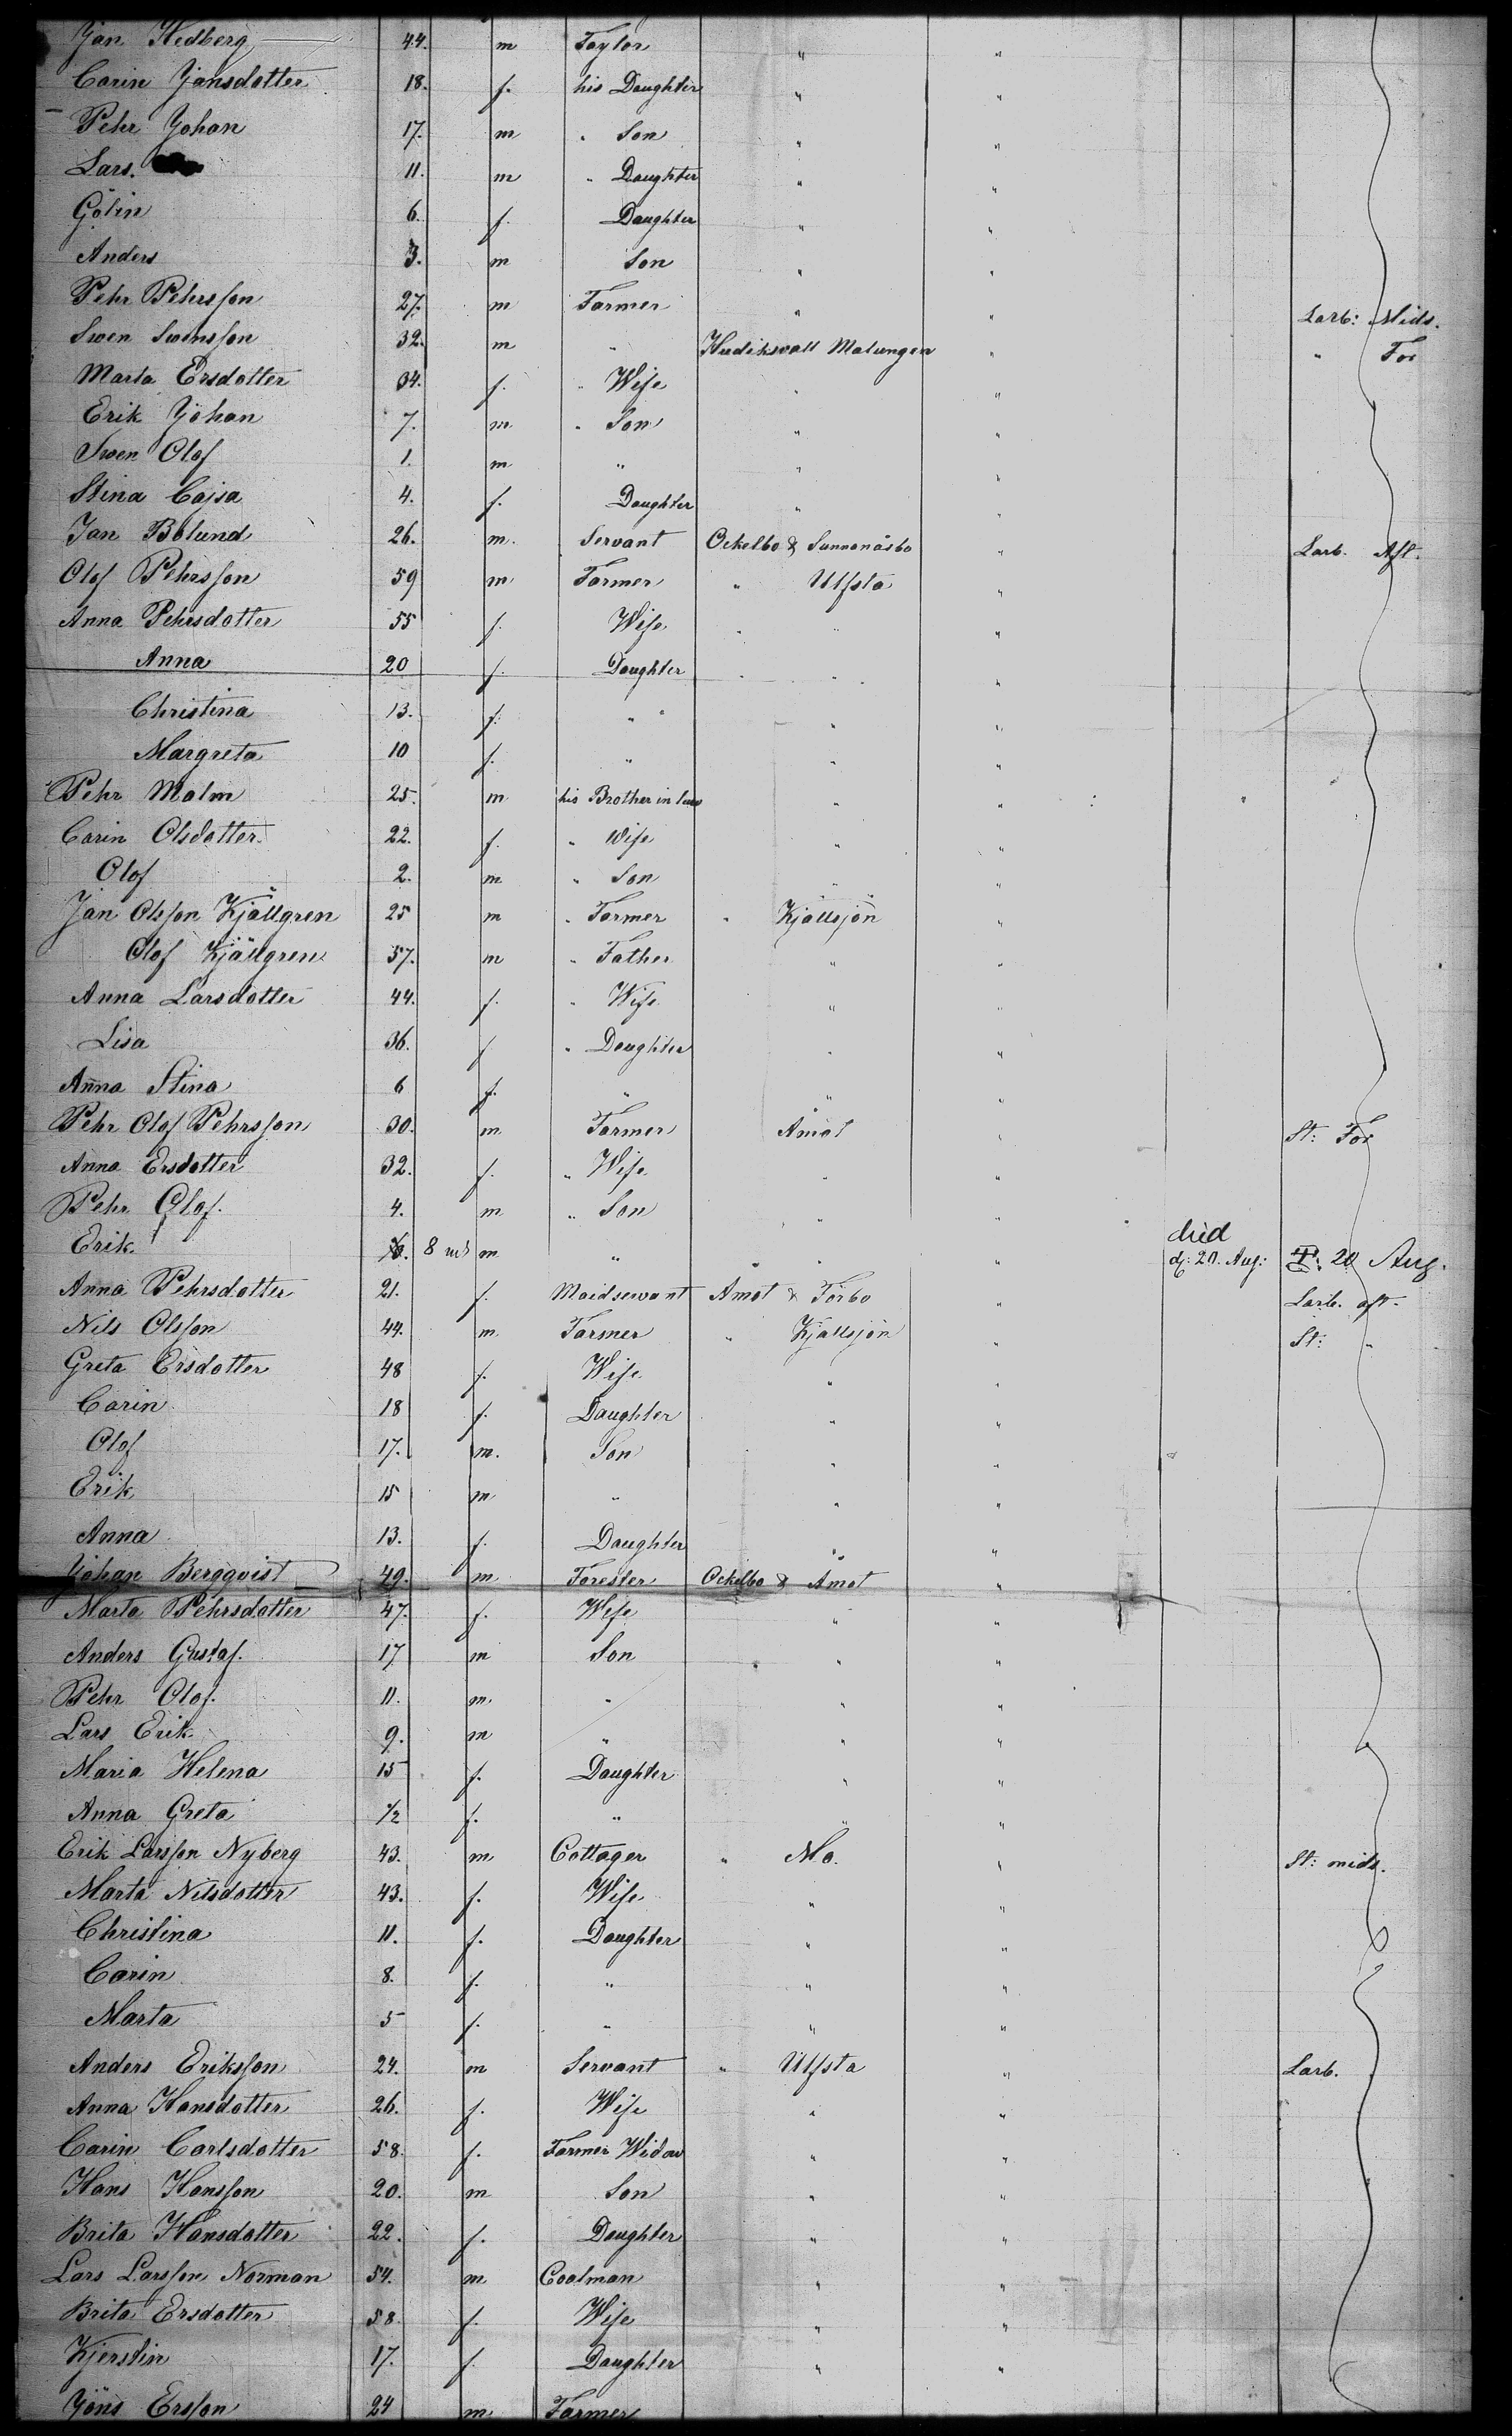 Jan Hedberg 44. m Taylor " "
Carin Jansdotter 18. f. his Daughter " "
Pehr Johan 17. m " Son " "
Lars. 11. m " Daughter " "
Gölin 6. f. Daughter " "
Anders 3. m Son " "
Pehr Pehrsson 27. m Farmer " " Larb: Mids.
Swen Swensson 32. m " Hudikswall Malungen " " For
Marta Ersdotter 34. f. " Wife " "
Erik Johan 7. m " Son " "
Swen Olof 1. m " " "
Stina Cajsa 4. f. Daughter " "
Jan Bolund 26. m. Servant Ockelbo & Sunnanåsbo " Larb. Aft.
Olof Pehrsson 59 m Farmer " Ulfsta "
Anna Pehrsdotter 55 f. Wife " " "
Anna 20 f. Daughter " " "
Christina 13. f. " " "
Margreta 10 f. " " "
Pehr Malm 25. m his Brother in law " "
Carin Olsdotter. 22. f. " Wife " "
Olof 2. m " Son " "
Jan Olsson Kjällgren 25 m " Farmer " Kjällsjön "
Olof Kjällgren 57. m " Father " "
Anna Larsdotter 44. f. " Wife " "
Lisa 36. f " Daughter " "
Anna Stina 6 f. " " "
Pehr Olof Pehrsson 30. m Farmer Åmot " St: For
Anna Ersdotter 32. f. " Wife " "
Pehr Olof. 4. m " Son " "
Erik 8 m m " " " died d: 20. Aug: 20 Aug.
Anna Pehrsdotter 21. f. Maidservant Amot & Förbo " Larb. aft.
Nils Olsson 44. m Farmer " Kjällsjön " St: "
Greta Ersdotter 48 f. Wife " "
Carin 18 f. Daughter " "
Olof 17. m. Son " "
Erik 15 m " " "
Anna 13. f. Daughter " "
Johan Bergqvist 49. m Forester Ockelbo & Åmot "
Marta Pehrsdotter 47. f. Wife " "
Anders Gustaf. 17 m Son " "
Pehr Olof. 11. m. " " "
Lars Erik 9. m " " "
Maria Helena 15 f. Daughter " "
Anna Greta 1/2 f. " " "
Erik Larsson Nyberg 43. m Cottager " Mo. " St: mids.
Marta Nilsdotter 43. f. Wife " "
Christina 11. f. Daughter " "
Carin 8. f. " " "
Marta 5 f. " " "
Anders Eriksson 24. m Servant " Ulfsta " Larb.
Anna Hansdotter 26. f. Wife " "
Carin Carlsdotter 58. f. Farmer Widow " "
Hans Hansson 20. m Son " "
Brita Hansdotter 22. f. Daughter " "
Lars Larsson Norman 54. m Coalman " "
Brita Ersdotter 58. f. Wife " "
Kjerstin 17. f. Daughter " "
Jöns Ersson 24 m Farmer